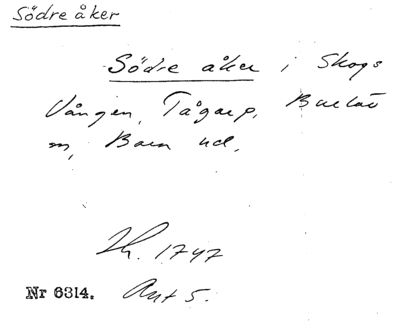 Södre åker
Södre åker i Skogs
Vången, Tågarp, Burlöv
sn, Bara hd.
Lh. 1747
Nr 6314. Akt 5.